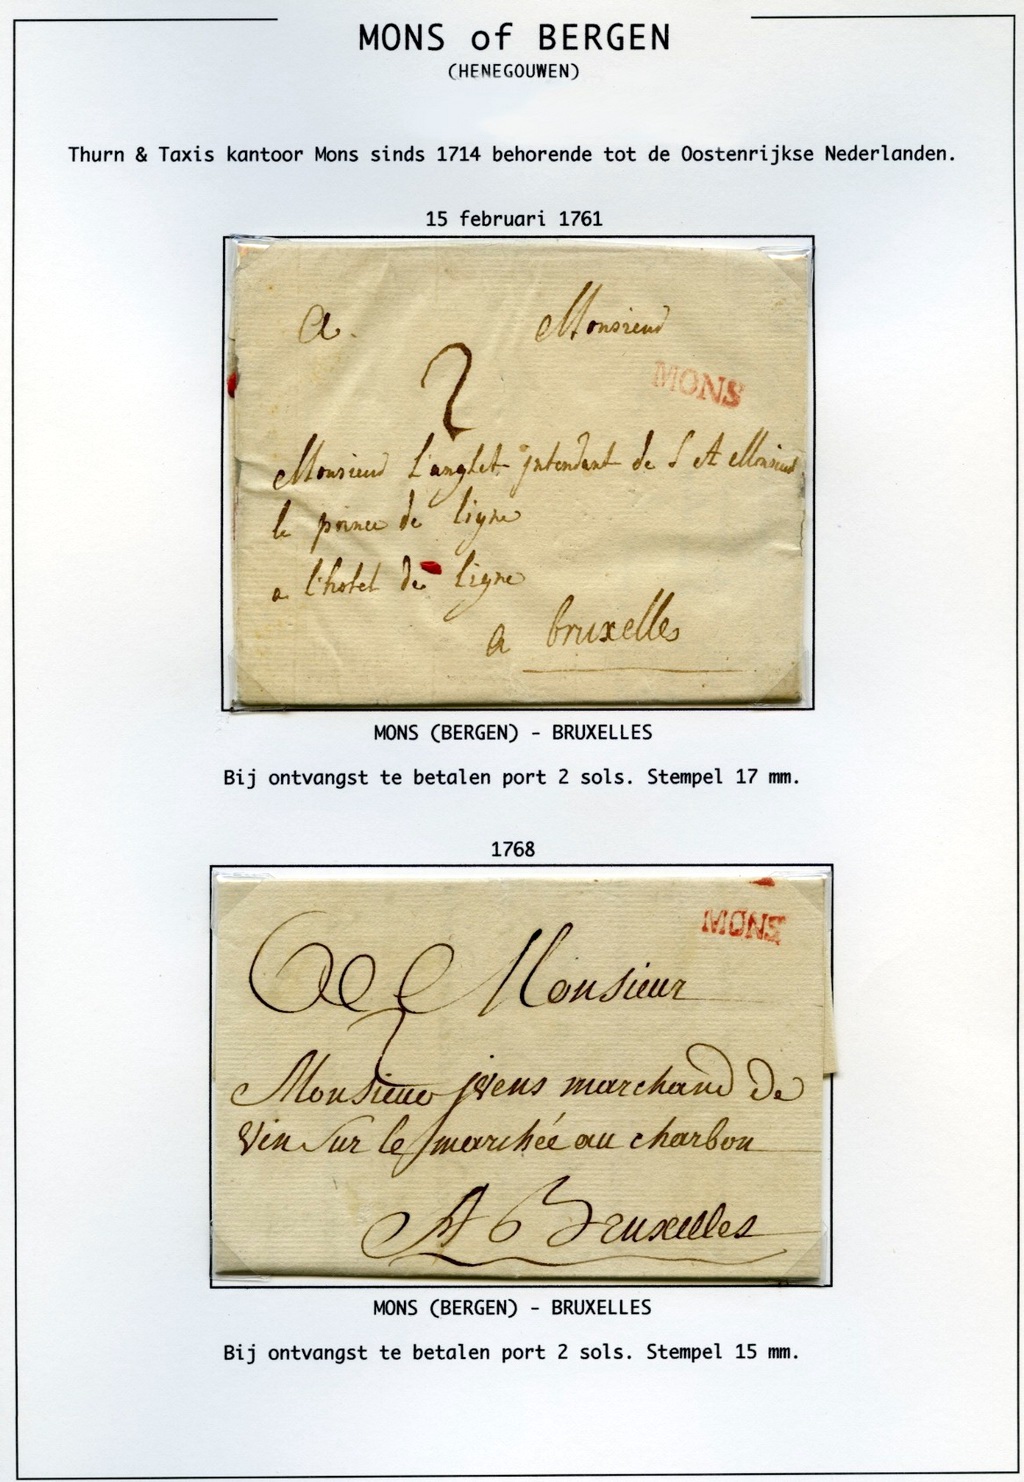 MONS of BERGEN
(HENEGOUWEN)
Thurn & Taxis kantoor Mons sinds 1714 behorende tot de Oostenrijkse Nederlanden.
15 februari 1761
A Monsieur
MONS
2
Monsieur l'anglet intendant de S A Monsieur
le prince de ligne
a l'hotel de ligne
a bruxelles
MONS (BERGEN) - BRUXELLES
Bij ontvangst te betalen port 2 sols. Stempel 17 mm.
1768
MONS
A Monsieur
2
Monsieur marchand de
Vin Sur le marchée au charbon
A Bruxelles
MONS (BERGEN) - BRUXELLES
Bij ontvangst te betalen port 2 sols. Stempel 15 mm.